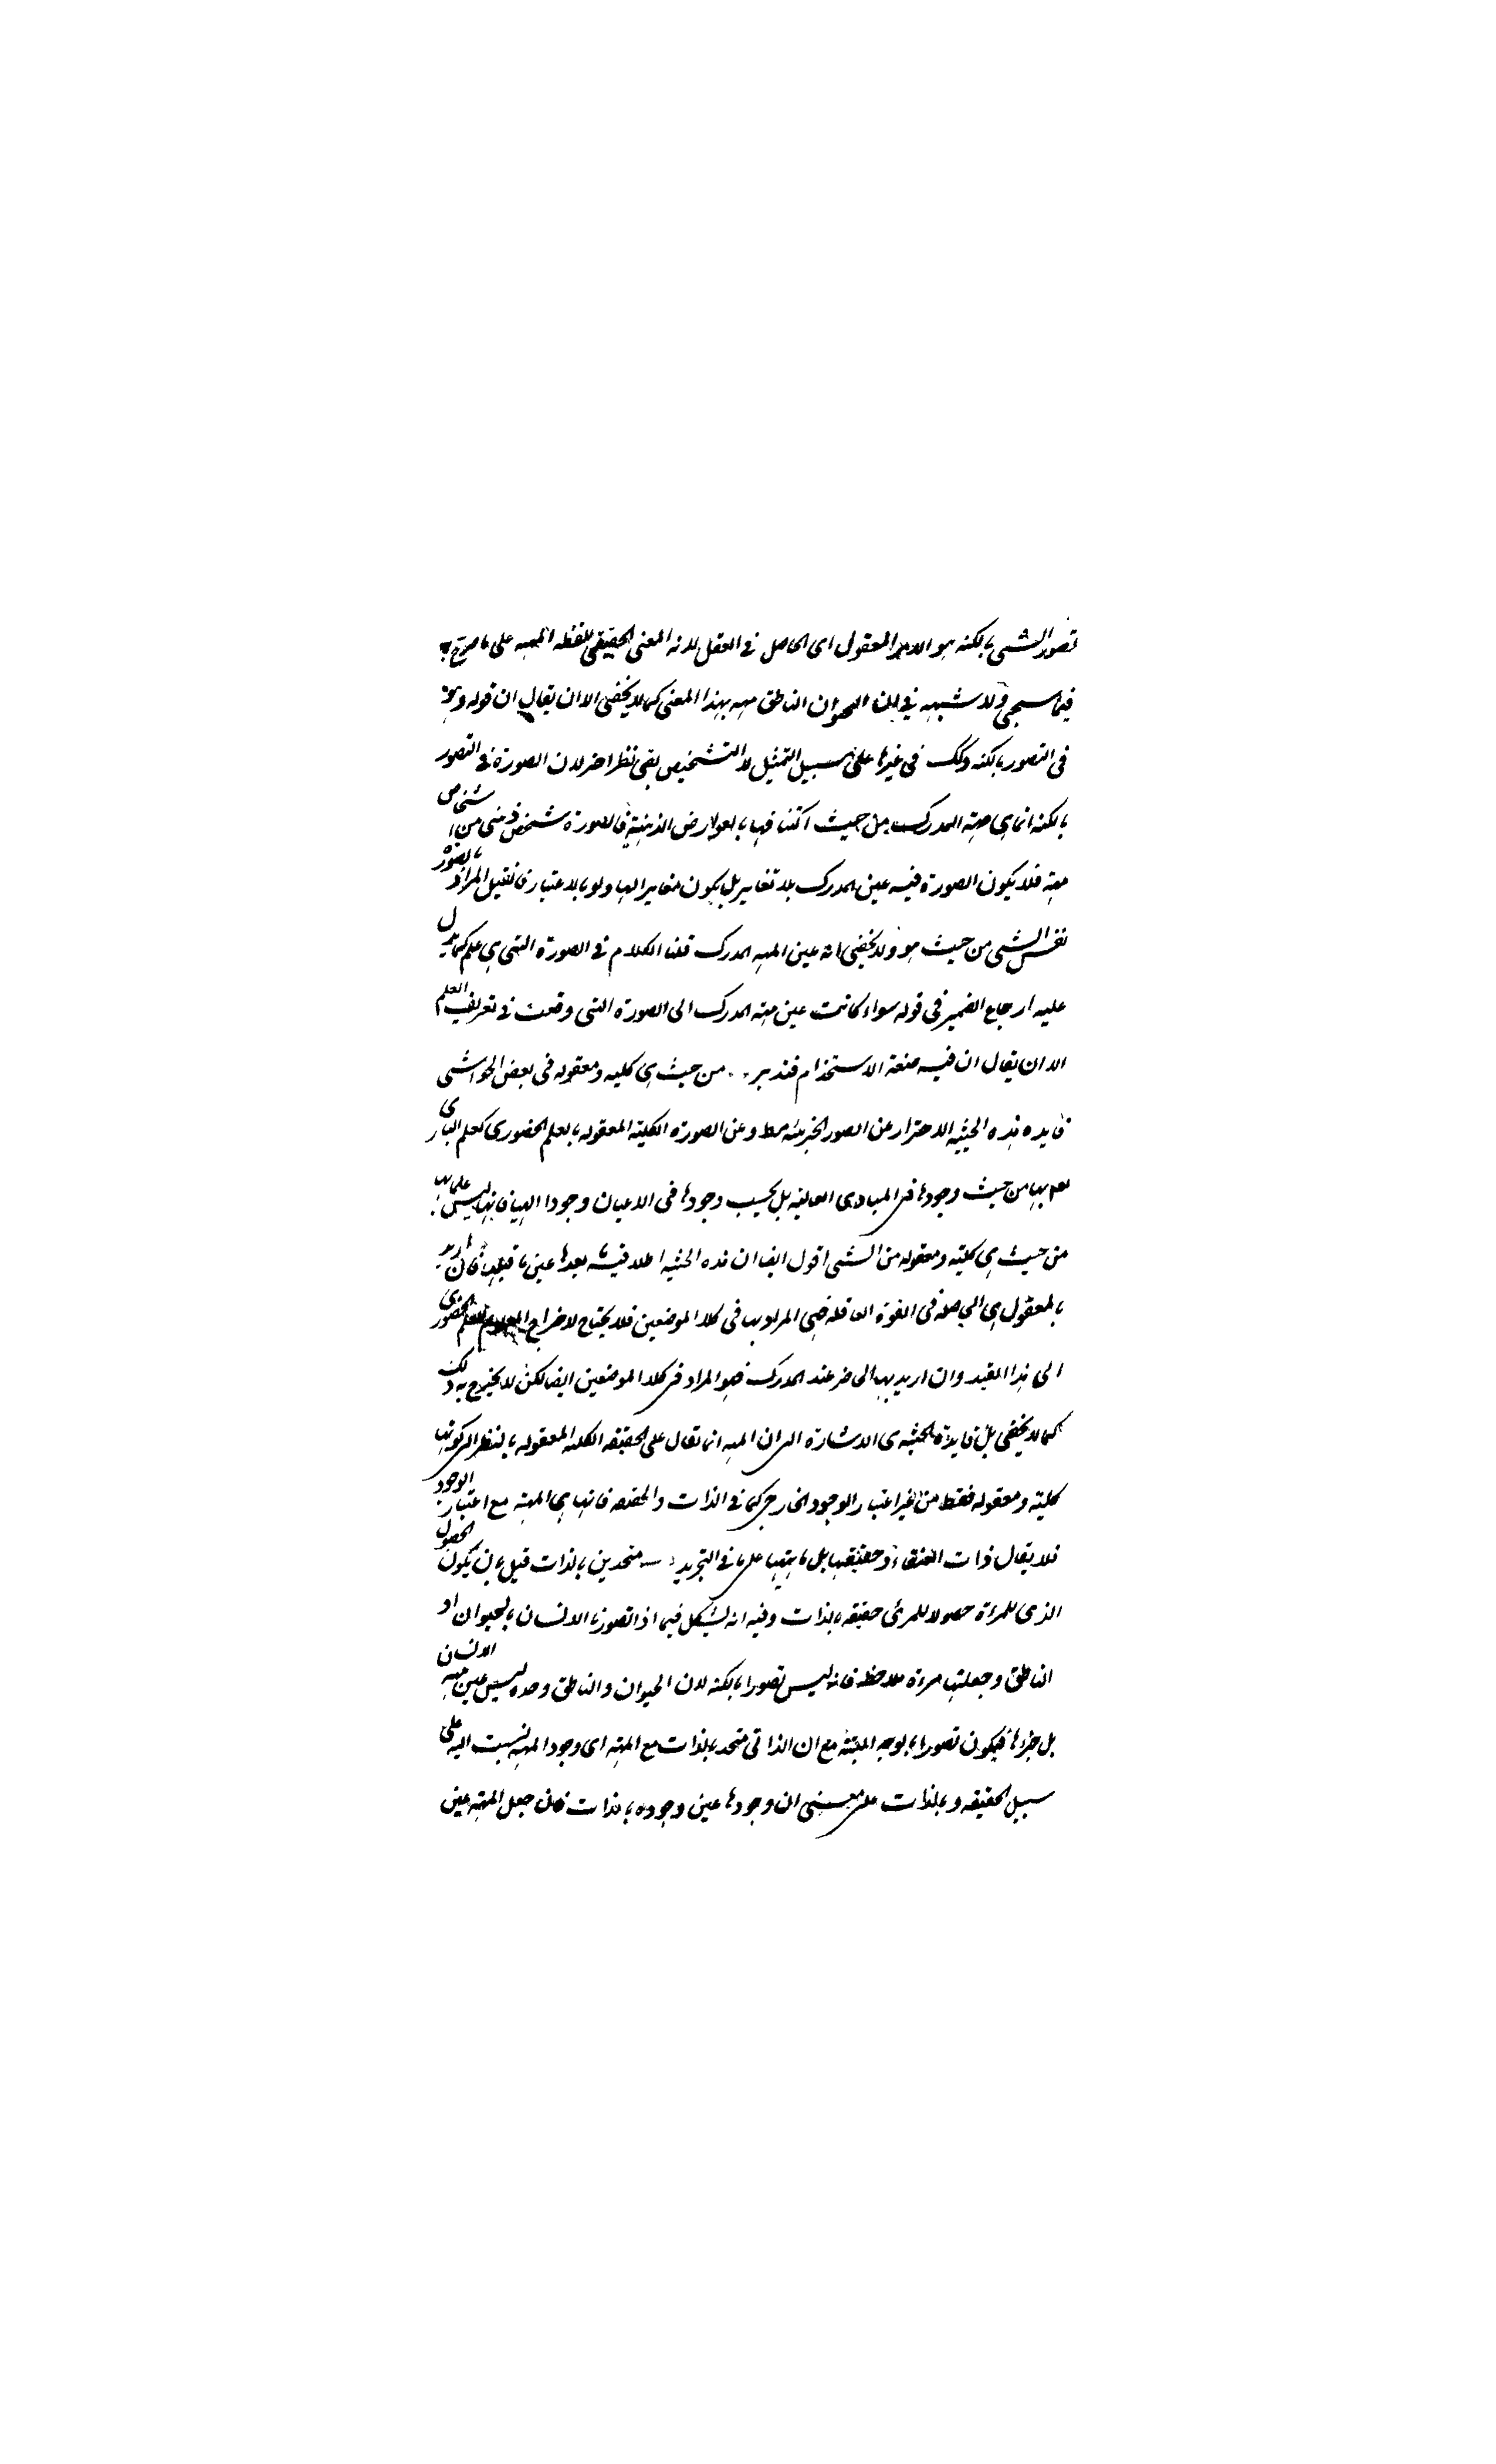 تصور الشيء بالكنه هو الامر المعقول اى الحاصل فى العقل لانه المعنى الحقيقى للفظه المهيه على ما صرح به
فيما سيجئ ولا شبهه فى ان الحيوان الناطق مهيه بهذا المعنى كما لا يخفى الا ان يقال ان قوله وهو
فى التصور بالكنه وكك فى غيرها على سبيل التمثيل لا التشخيص بقى نظر اخر لان الصورة فى التصور
بالكنه انما هى مهيته المدرك من حيث اكتنافها بالعوارض الذهنية فالصورة شخص ذهنى من اشخاص
مهيته فلا يكون الصورة فيه عين المدرك بلا تغاير بل يكون مغايرا لها ولو بالاعتبار فان قيل المراد بالصورة
نفس الشيء من حيث هو ولا يخفى انه عين المهيه المدرك قلنا الكلام فى الصورة التى هى علم كما يدل
عليه ارجاع الضمير فى قوله سواء كانت عين مهيته المدرك الى الصورة التى وقعت فى تعريف العلم
الا ان يقال ان فيه صنعة الاستخدام فتدبر .. من حيث هى كليه ومعقوله فى بعض الحواشى
فايده هذه الحيثيه الاحتراز عن الصور الجزئيه وعن الصورة الكلية المعقوله بالعلم الحضورى كعلم البارى
بها من حيث وجودها فى المبادى العاليه بل بحسب وجودها فى الاعيان وجودا الهيا فانها ليس علما بها
من حيث هى كليته ومعقوله من الشى اقول ايضا ان هذه الحيثيه اطلاقيه ما بعدها عين ما قبلها فان اريد
بالمعقول هى الحاصله فى القوة العاقله فهى المراد بها فى كلا الموضعين فلا يحتاج لاخراج العلم الحضورى
الى هذا القيد وان اريد بها الحاضر عند المدرك فهو المراد فى كلا الموضعين ايضا لكن لا يخرج به ذلك
كما لا يخفى بل فايدة الحيثيه هى الاشارة الى ان المهيه انما تقال على الحقيقه الكليه المعقوله بالنظر الى كونها
كلية ومعقوله فقط من غير اعتبار الوجود الخارجى كما فى الذات والحقيقه فانها هى المهيه مع اعتبار الوجود
فلا يقال ذات العنقاء وحقيقتها بل ماهيتها على ما فى التجريد متحدين بالذات قيل بان يكون الحصول
الذى للمرءة حصولا للمرئى حقيقه بالذات وفيه انه يشكل فيما اذا تصور نا الانسان بالحيوان او
الناطق وجعلتها مرءة ملاحظه فانه ليس تصورا بالكنه لان الحيوان والناطق وحده ليس عين مهيه الانسان
بل جزئها فيكون تصورا بالوجه البته مع ان الذاتى متحد بالذات مع المهيه اى وجود المهيه نسبت اليه على
سبيل الحقيقه وبالذات على معنى ان وجودها عين وجوده بالذات فان جعل المهيه عين